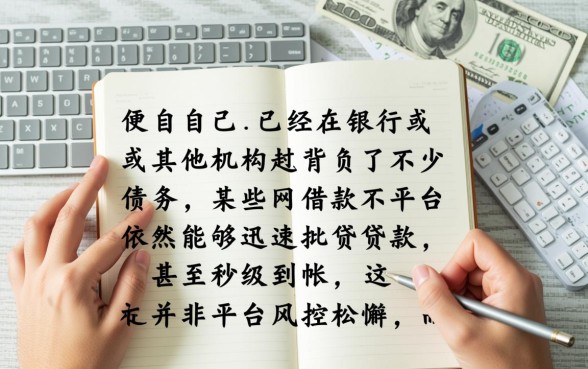 便自自己.已经在银行或
或其他机构过背负了不少
债务，某些网借款不平台
依然能够迅速批贷贷款，
甚至秒级到帐，这
并非平台风控松懈，